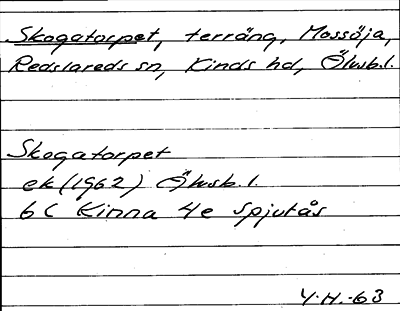 Skogatorpet, terräng, Mossöja,
Redslareds sn, Kinds hd, Älvsb.l.
Skogatorpet
ek (1962) Älvsb.l.
6C Kinna 4e Spjutås
Y.H.-63